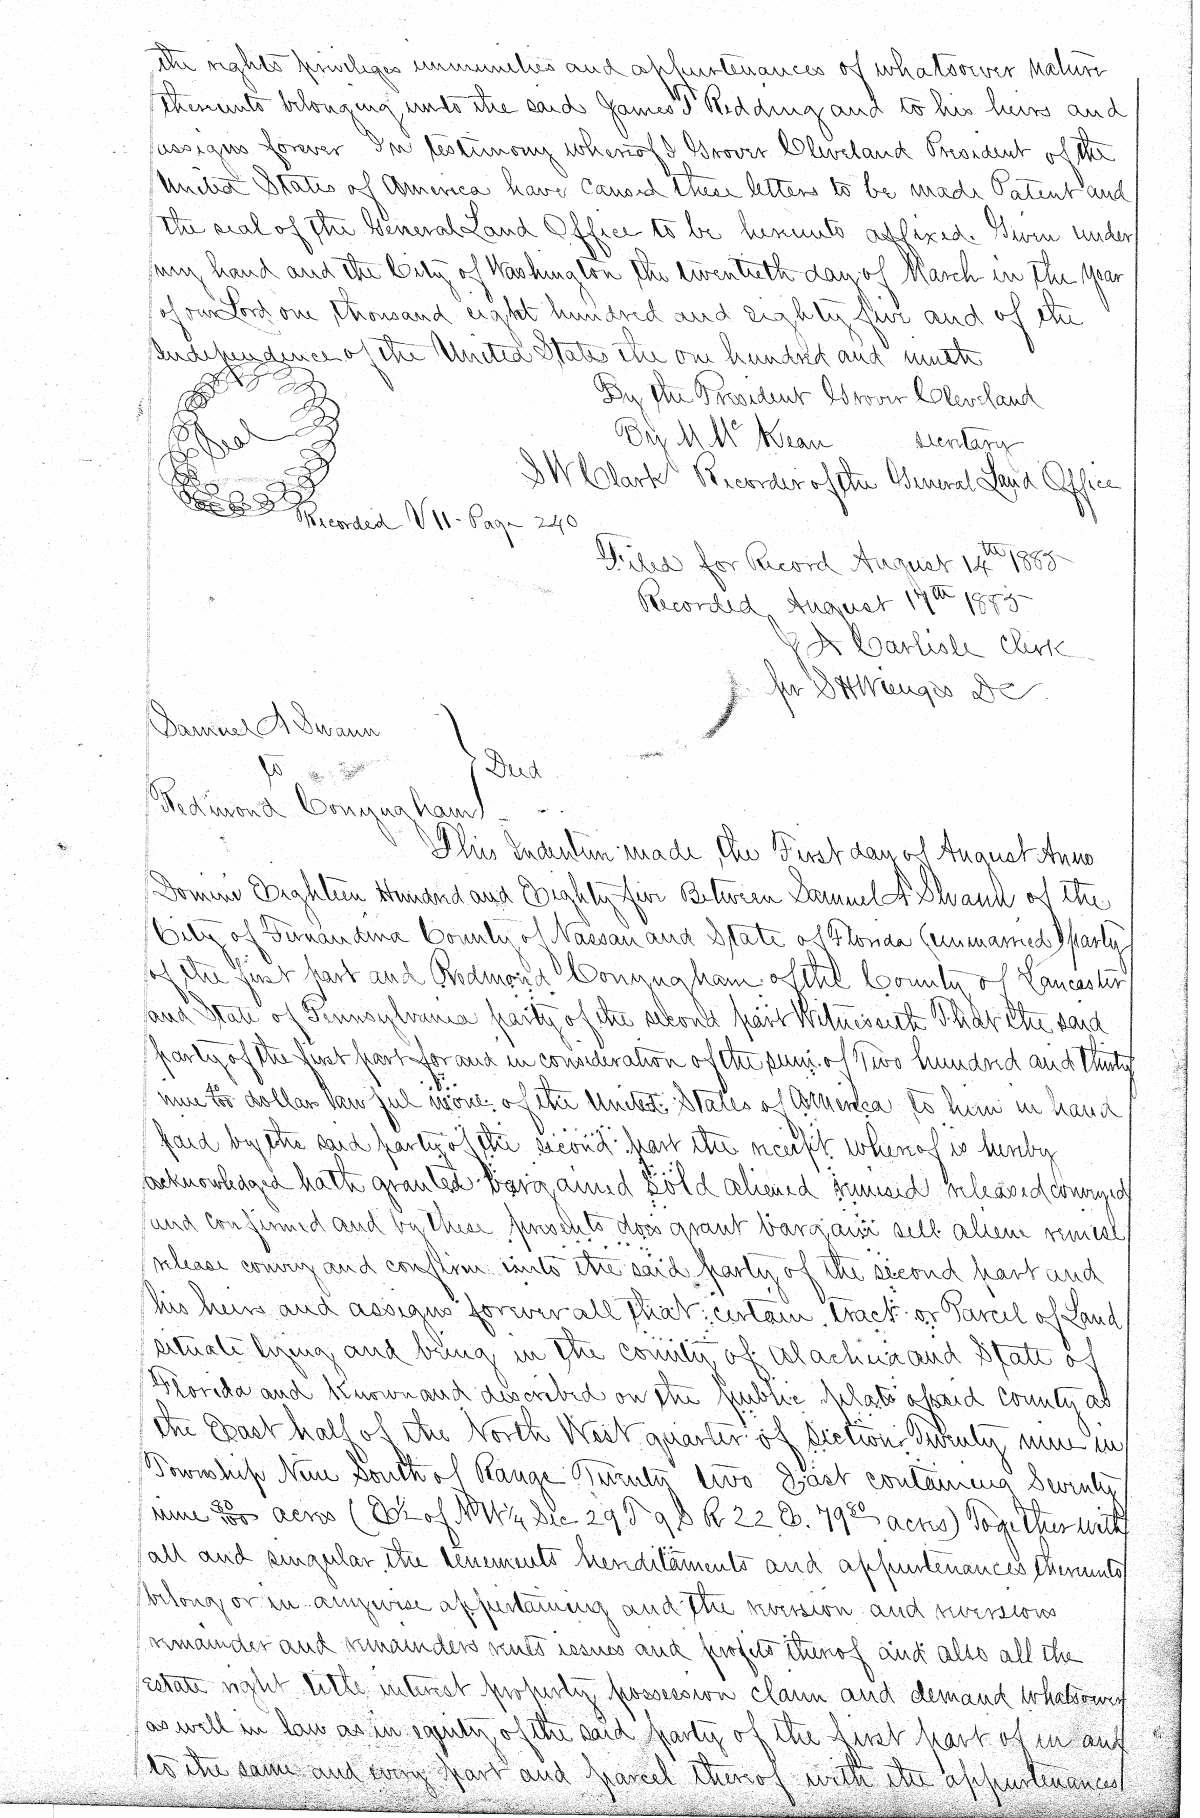 the rights privileges immunities and appurtenances of whatsoever nature
thereunto belonging unto the said James T Redding and to his heirs and
assigns forever In testimony whereof I Grover Cleveland President of the
United States of America have caused these letters to be made Patent and
the seal of the General Land Office to be hereunto affixed. Given under
my hand and the City of Washington the twentieth day of March in the year
of our Lord one thousand eight hundred and eighty five and of the
Independence of the United States the one hundred and ninth
By the President Grover Cleveland
Seal
By M Mc Kean secretary
S W Clark Recorder of the General Land Office
Recorded V 11 - Page 240
Filed for Record August 14th 1885
Recorded August 17th 1885
J A Carlisle Clerk
per S H Wienges D C
Samuel A Swann
to } Deed
Redmond Conyngham
This Indenture made the First day of August Anno
Domini Eighteen Hundred and Eighty five Between Samuel A Swann of the
City of Fernandina County of Nassau and State of Florida (unmarried) party
of the first part and Redmond Conyngham of the County of Lancaster
and State of Pennsylvania party of the second part Witnesseth That the said
party of the first part for and in consideration of the sum of Two hundred and thirty
nine 40/100 dollars lawful mone of the United States of America to him in hand
paid by the said party of the second part the receipt whereof is hereby
acknowledged hath granted bargained sold aliened remised released conveyed
and confirmed and by these presents does grant bargain sell aliene remise
release convey and confirm unto the said party of the second part and
his heirs and assigns forever all that certain tract or Parcel of Land
situate lying and being in the county of Alachua and State of
Florida and known and described on the public plats of said county as
the East half of the North West quarter of section Twenty nine in
Township Nine South of Range Twenty two East containing Seventy
nine 80/100 acres (E½ of NW¼ Sec 29 T 9 S R 22 E. 79 80 acres) Together with
all and singular the tenements hereditaments and appurtenances thereunto
belong or in anywise appertaining and the reversion and reversions
remainder and remainders rents issues and profits thereof and also all the
estate right title interest property possession claim and demand whatsoever
as well in law as in equity of the said party of the first part of in and
to the same and every part and parcel thereof with the appurtenances